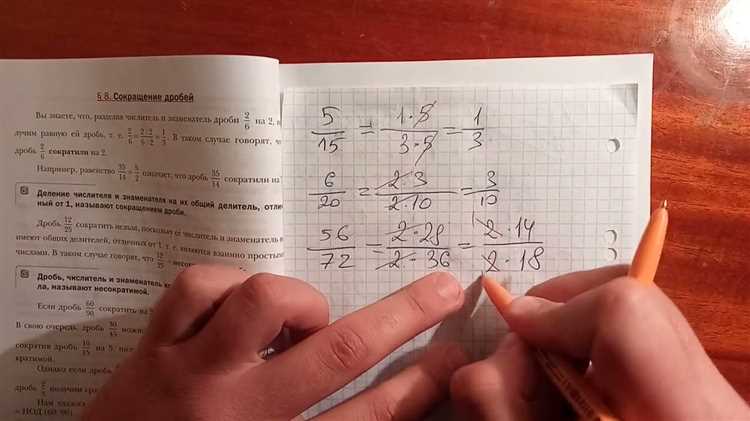 § 8. Сокращение дробей
Вы знаете, что, разделив числитель и знаменатель дроби 2/6 на 2,
лучим равную ей дробь, т. е. 2/6 = 2:2/6:2 = 1/3. В таком случае говорят, чт
дробь 2/6 сократили на 2.
Например, равенство 35/14 = 5/2 означает, что дробь 35/14 сократили на
Деление числителя и знаменателя на их общий делитель, отлич
ный от 1, называют сокращением дроби.
Дробь 12/25 сократить нельзя, поскольку числитель и знаменатель н
имеют общих делителей, отличных от 1, т. е. являются взаимно простым
числами. В таком случае говорят, что 12/25 –
Дробь, числитель и знаменатель
ла, называют несократимой.
Если дробь 60/90 сократить на
В свою очередь, дробь 30/45 можн
сократив дробь 10/15 на 5,
кратимой.
Однако если дробь
дробь 2/3 получим
Нам
= НОД (60; 90)
5/15 = 1·5/3·5 = 1/3
6/20 = 2·3/2·10 = 3/10
56/72 = 2·28/2·36 = 2·14/2·18